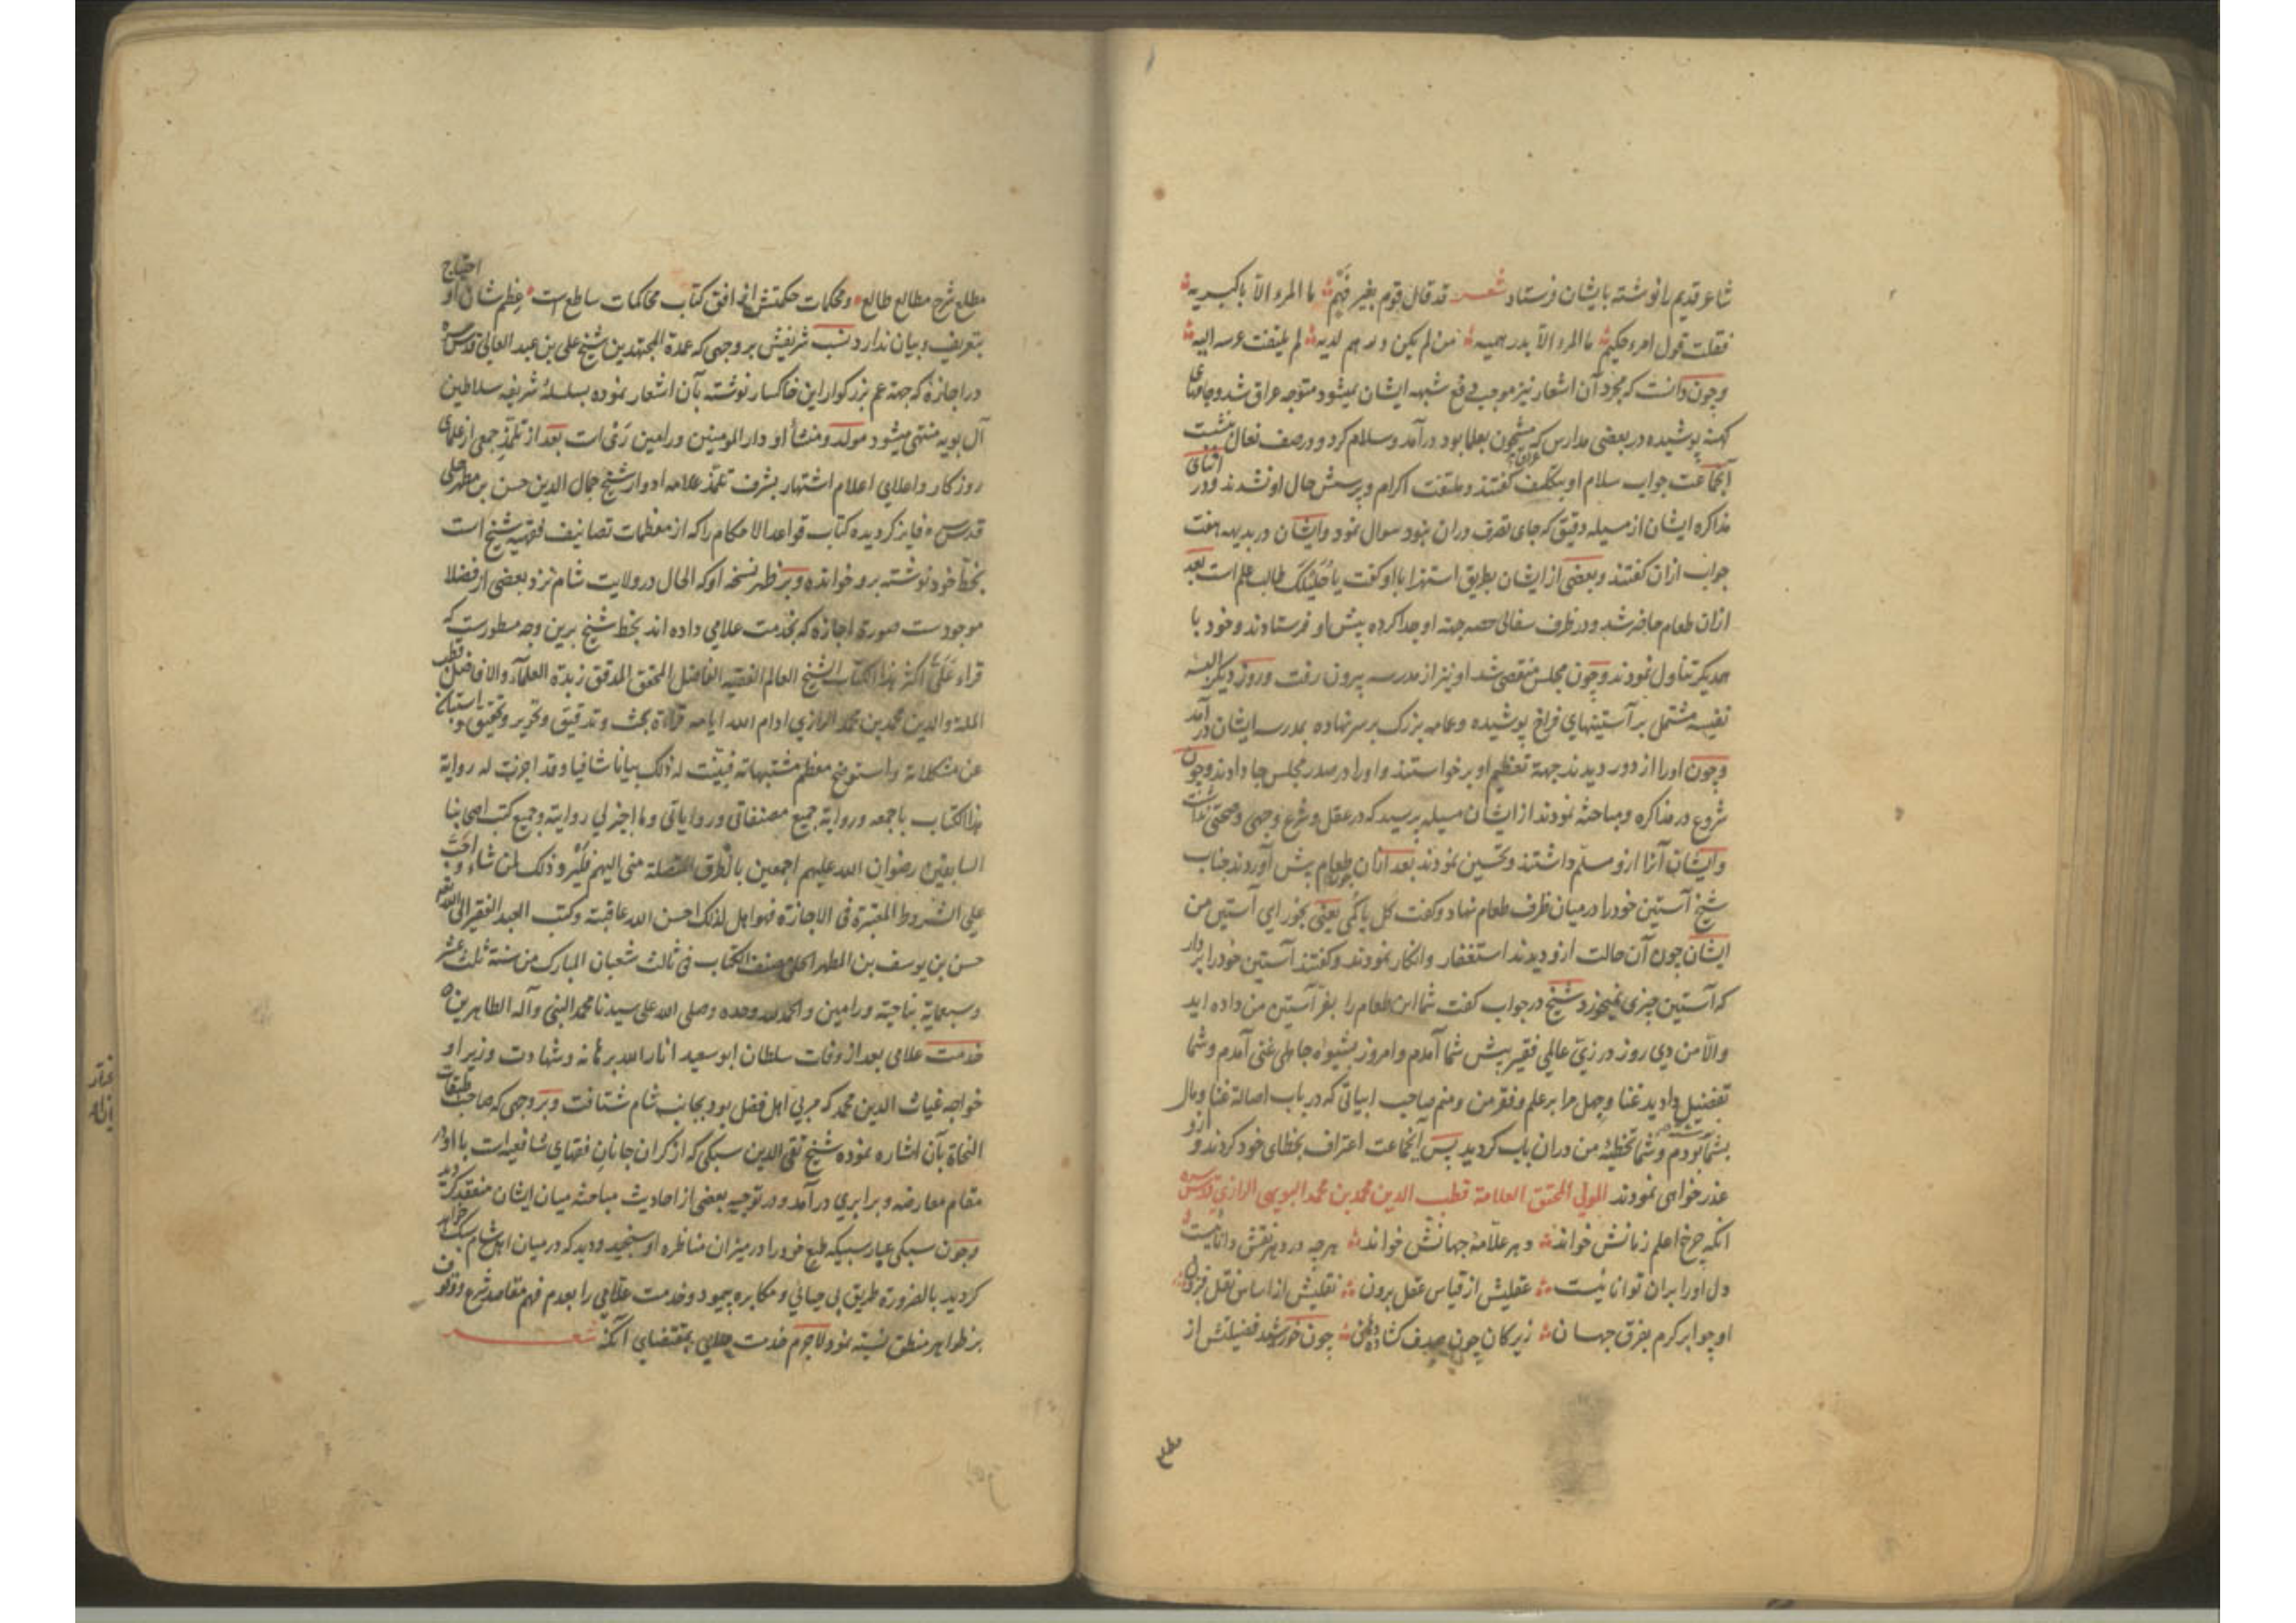 شاعر قدیم را نوشته بایشان فرستاد شعر قد قال قوم بغیر فهم ما المرء الا باکبریه
فقلت قول امرء حکیم ما المرء الا بدرهمیه من لم یکن درهم لدیه لم یلتفت عرسه الیه
وچون دانست که مجرد آن اشعار نیز موجب دفع شبهه ایشان نمیشود متوجه عراق شد وجامهای
کهنه پوشیده در بعضی مدارس که مشحون بعلما بود درآمد وسلام کرد ودر صف نعال نشست
آنجماعت جواب سلام او بتکلف گفتند وملتفت اکرام وپرسش حال او نشدند ودر اثنای
مذاکره ایشان از مسیله دقیق که جای تصرف دران بنود سوال نمود وایشان در بدیهه هفت
جواب ازان گفتند وبعضی از ایشان بطریق استهزا با او گفت یا خلیلک طالب علم است بعد
ازان طعام حاضر شد ودر ظرف سفالی حصه جهة او جدا کرده پیش او فرستادند وخود با
همدیگر تناول نمودند وچون مجلس منقضی شد او نیز از مدرسه بیرون رفت وروز دیگر البسه
نفیسه مشتمل بر آستینهای فراخ پوشیده وعمامه بزرگ بر سر نهاده بمدرسه ایشان درآمد
وچون او را از دور دیدند جهة تعظیم او برخواستند واورا در صدر مجلس جا دادند وچون
شروع در مذاکره ومباحثه نمودند از ایشان مسیله پرسید که در عقل وشرع وجهی وصحتی نداشت
وایشان آنرا ازو مسلم داشتند وتحسین نمودند بعد ازان چون طعام پیش آوردند جناب
شیخ آستین خود را در میان ظرف طعام نهاد وگفت کل یا کمی یعنی بخور ای آستین من
ایشان چون آن حالت ازو دیدند استغفار وانکار نمودند وگفتند آستین خود را بردار
که آستین چیزی نمیخورد شیخ در جواب گفت شما این طعام را بفر آستین من داده اید
والا من دی روز در زی عالمی فقیر پیش شما آمدم وامروز بشیوه جاهلی غنی آمدم وشما
تفضیل دادید غنا وجهل مرا بر علم وفقر من ومنم صاحب ابیاتی که در باب اصالة غنا ومال
بشما نوشته بودم وشما تخطیه من دران باب کردید پس آنجماعت اعتراف بخطای خود کردند وازو
عذر خواهی نمودند المولی المحقق العلامة قطب الدین محمد بن محمد البویهی الرازی قدس سره
انکه چرخ اعلم زمانش خواند دهر علامة جهانش خواند هرچه در دهر نقش دانائیست
دل او را بران توانائیست عقلیش از قیاس عقل برون نقلیش از اساس نقل فزون
او چو ابر کرم بفرق جهان زیرکان چون صدف گشاده دهن چون خورشید فضیلتش از
مطلع شرح مطالع طالع ومحکمات حکمتش از افق کتاب محاکمات ساطع است عظم شان او احتیاج
بتعریف وبیان ندارد نسب شریفش بر وجهی که عمدة المجتهدین شیخ علی بن عبد العالی قدس سره
در اجازه که جهة عم بزرکوار این خاکسار نوشته بآن اشعار نموده بسلسله شریفه سلاطین
آل بویه منتهی میشود مولد ومنشأ او دار المومنین ورامین ری است بعد از تلمذ جمعی از علمای
روزکار واعلای اعلام اشتهار بشرف تلمذ علامه ادوار شیخ جمال الدین حسن بن مطهر حلی
قدس سره فایز کردیده کتاب قواعد الاحکام را که از معظمات تصانیف فقهیه شیخ است
بخط خود نوشته برو خوانده وبر ظهر نسخه او که الحال در ولایت شام نزد بعضی از فضلا
موجودست صورة اجازه که بخدمت علامی داده اند بخط شیخ برین وجه مسطورست که
قراء علی اکثر هذا الکتاب الشیخ العالم الفقیه الفاضل المحقق المدقق زبدة العلماء والافاضل قطب
الملة والدین محمد بن محمد الرازی ادام الله ایامه قراءة بحث وتدقیق وتحریر وتحقیق واستبان
عن مشکلاته واستوضح معظم مشتبهاته فبینت له ذلک بیانا شافیا وقد اجزت له روایة
هذا الکتاب باجمعه وروایة جمیع مصنفاتی وروایاتی وما اجیز لی روایته وجمیع کتب اصحابنا
السابقین رضوان الله علیهم اجمعین بالطرق المتصلة منی الیهم فلیرو ذلک لمن شاء واحب
علی الشروط المعتبرة فی الاجازة فهو اهل لذلک احسن الله عاقبته وکتب العبد الفقیر الی الله تعالی
حسن بن یوسف بن المطهر الحلی مصنف الکتاب فی ثالث شعبان المبارک من سنة ثلث عشر
وسبعمایة بناحیة ورامین والحمد لله وحده وصلی الله علی سیدنا محمد النبی وآله الطاهرین
خدمت علامی بعد از وفات سلطان ابوسعید انار الله برهانه وشهادت وزیر او
خواجه غیاث الدین محمد که مربی اهل فضل بود بجانب شام شتافت وبر وجهی که صاحب طبقات
النحاة بآن اشاره نموده شیخ تقی الدین سبکی که از کران جانان فقهای شافعیه است با او در
مقام معارضه وبرابری درآمد ودر توجیه بعضی از احادیث مباحثه میان ایشان منعقد کردید
وچون سبکی عیار سبیکه طبع خود را در میزان مناظره او سنجید ودید که در میان اهل شام سبک خواهد
کردید بالضرورة طریق بی حیائی ومکابره پیمود وخدمت علامی را بعدم فهم مقاصد شرع ووقوف
بر ظواهر منطق نسبة نمود لاجرم خدمت علامی بمقتضای آنکه شعر